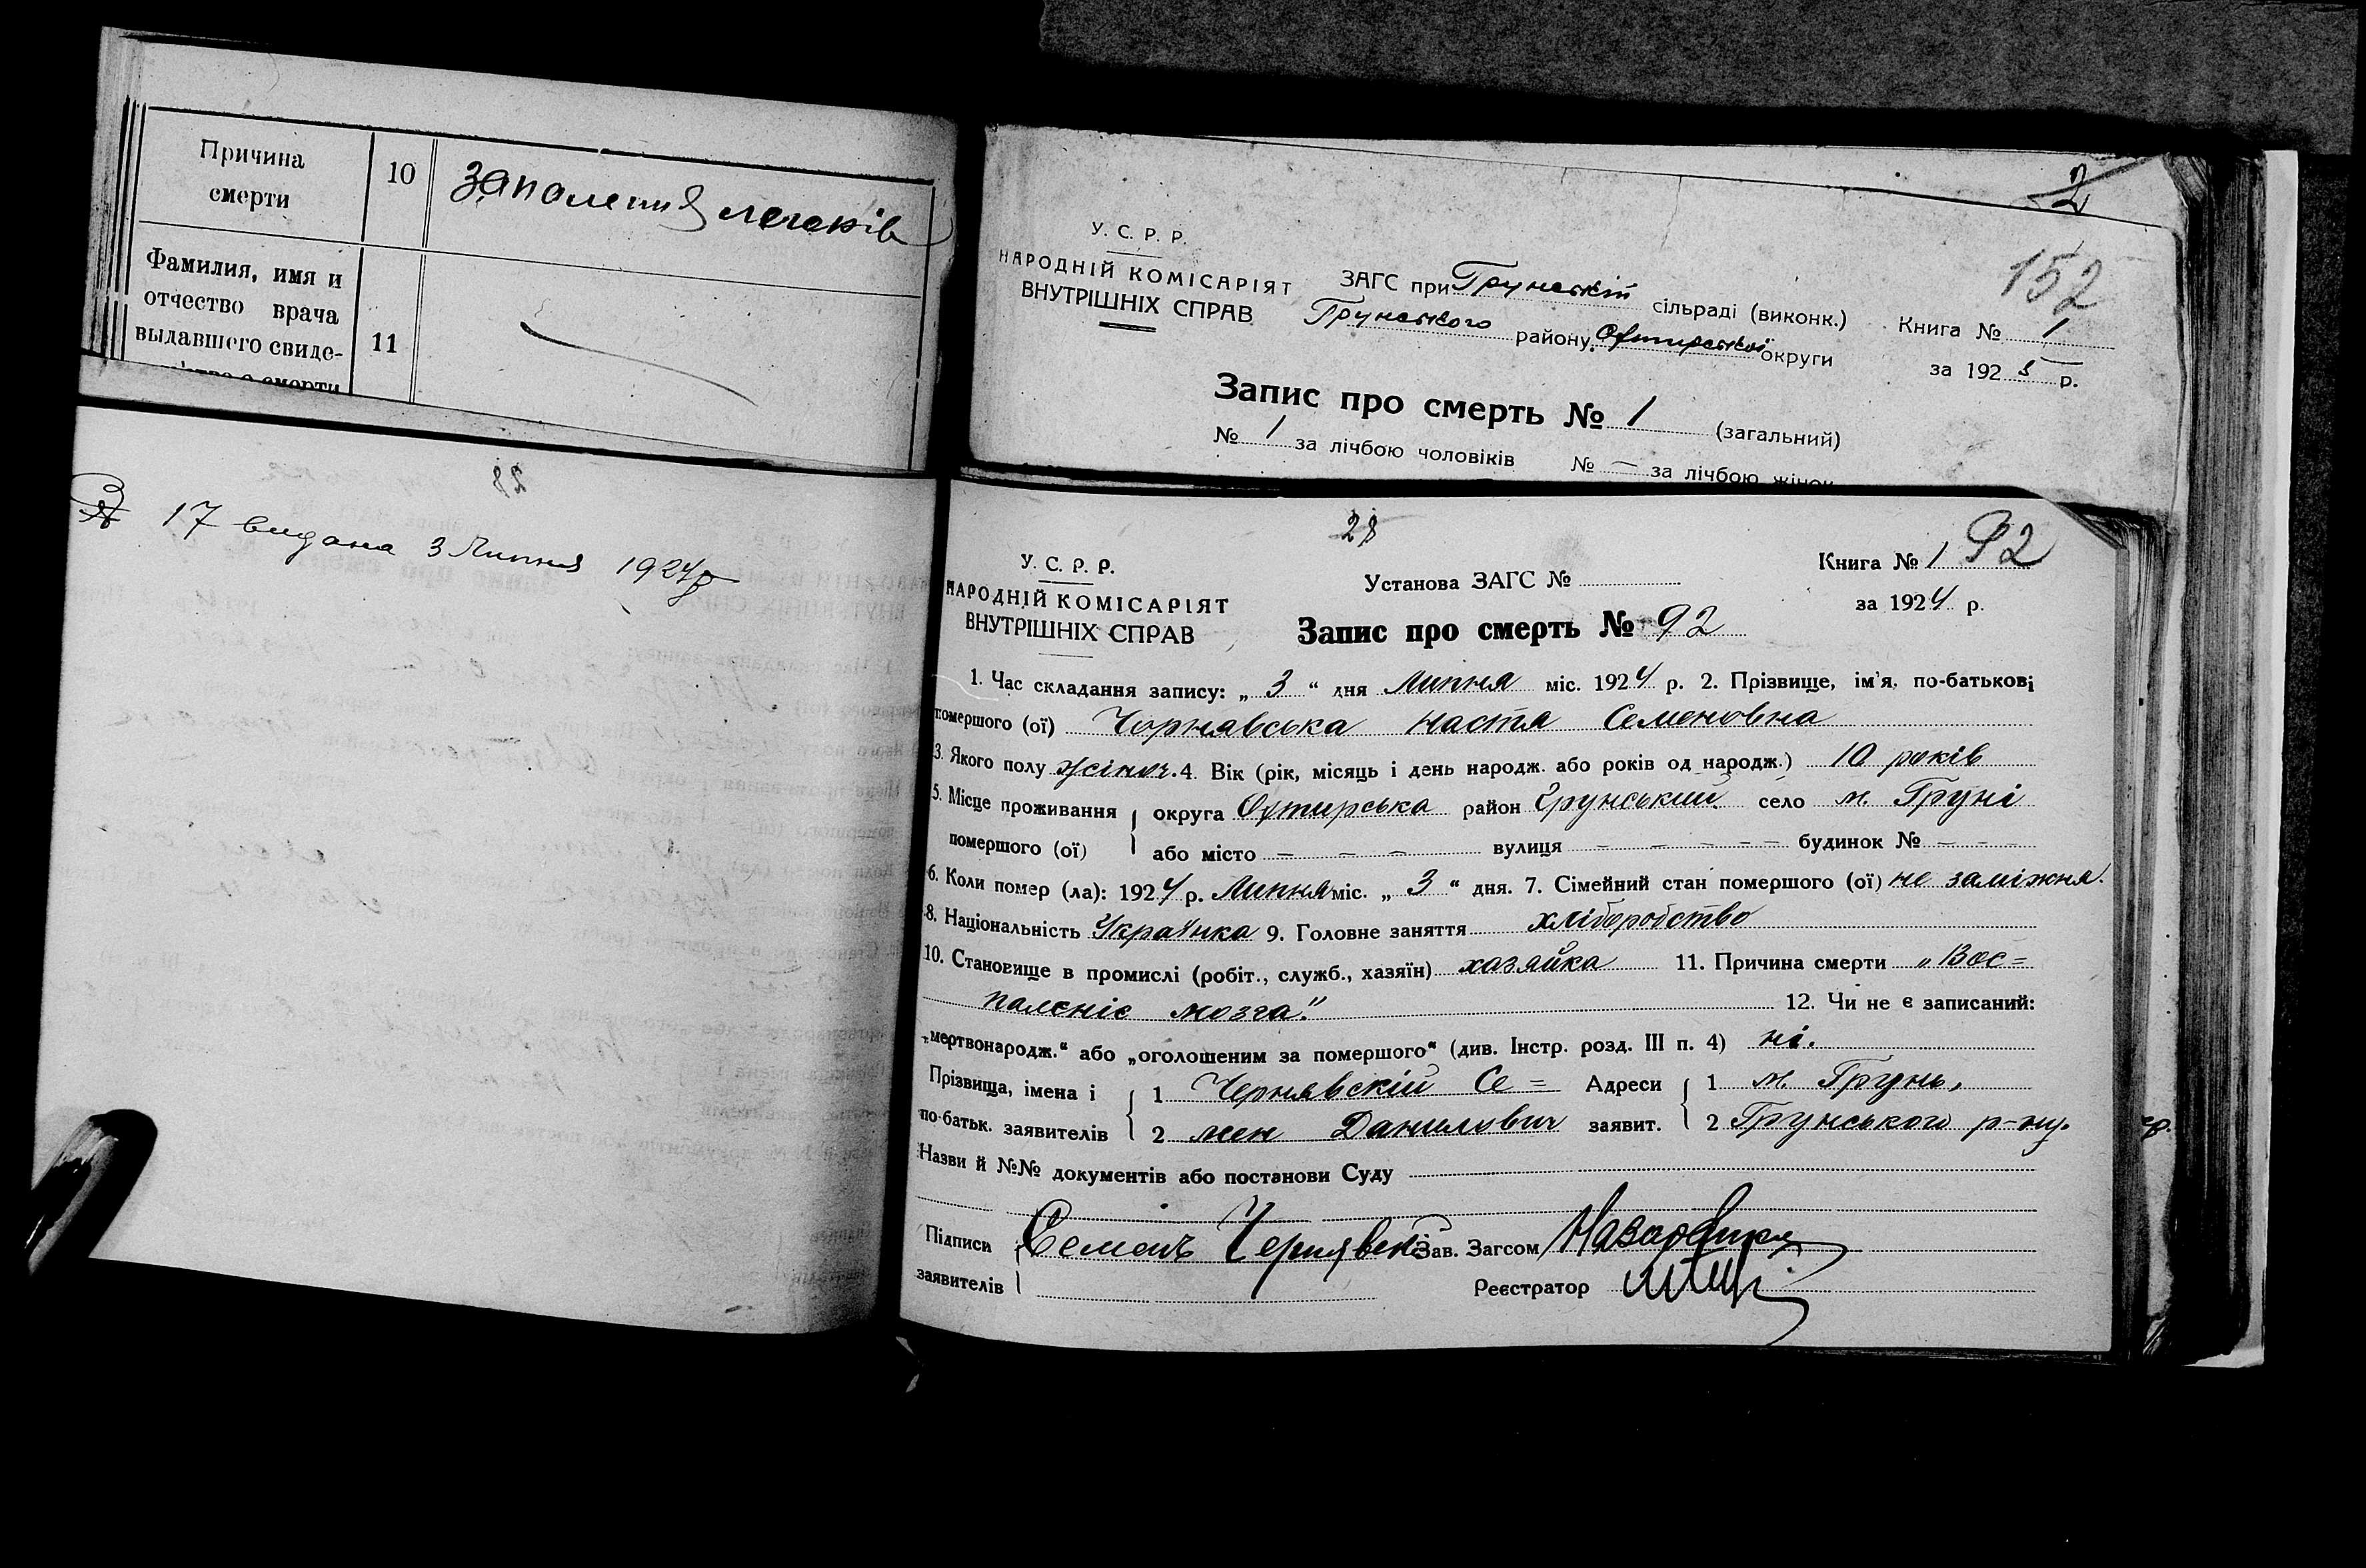 Причина
смерти
10
запаления легоків
Фамилия, имя и
отчество врача
выдавшего свиде-
11
17 видана 3 Липня 1924 р
2
152
У. С. Р. Р.
НАРОДНІЙ КОМІСАРІЯТ
ВНУТРІШНІХ СПРАВ
ЗАГС при Грунській сільраді (виконк.)
Грунського району Охтирської округи
Книга № 1
за 1925 р.
Запис про смерть № 1 (загальний)
№ 1 за лічбою чоловіків № — за лічбою жінок
28
У. С. Р. Р.
НАРОДНІЙ КОМІСАРІЯТ
ВНУТРІШНІХ СПРАВ
Установа ЗАГС №
Книга № 1 92
за 1924 р.
Запис про смерть № 92
1. Час складання запису: „ 3 “ дня Липня міс. 1924 р. 2. Прізвище, ім'я, по-батькові
помершого (ої) Чорнявська Настя Семеновна
3. Якого полу жіноч. 4. Вік (рік, місяць і день народж. або років од народж.) 10 років
5. Місце проживання округа Охтирська район Грунський село м. Груні
помершого (ої) або місто — — — вулиця — — — — — будинок № — — —
6. Коли помер (ла): 1924 р. Липня міс. „ 3 “ дня. 7. Сімейний стан помершого (ої) не заміжня.
8. Національність Українка 9. Головне заняття хліборобство
10. Становище в промислі (робіт., служб., хазяїн) хазяйка 11. Причина смерти „Вос=
паленіє мозга“ 12. Чи не є записаний:
„мертвонародж.“ або „оголошеним за помершого“ (див. Інстр. розд. III п. 4) ні.
Прізвища, імена і 1 Чернявскій Се= Адреси 1 м. Грунь,
по-батьк. заявителів 2 мен Данилович заявит. 2 Грунського р-ну.
Назви й №№ документів або постанови Суду
Підписи Семенъ Чернявскі Зав. Загсом
заявителів Реєстратор